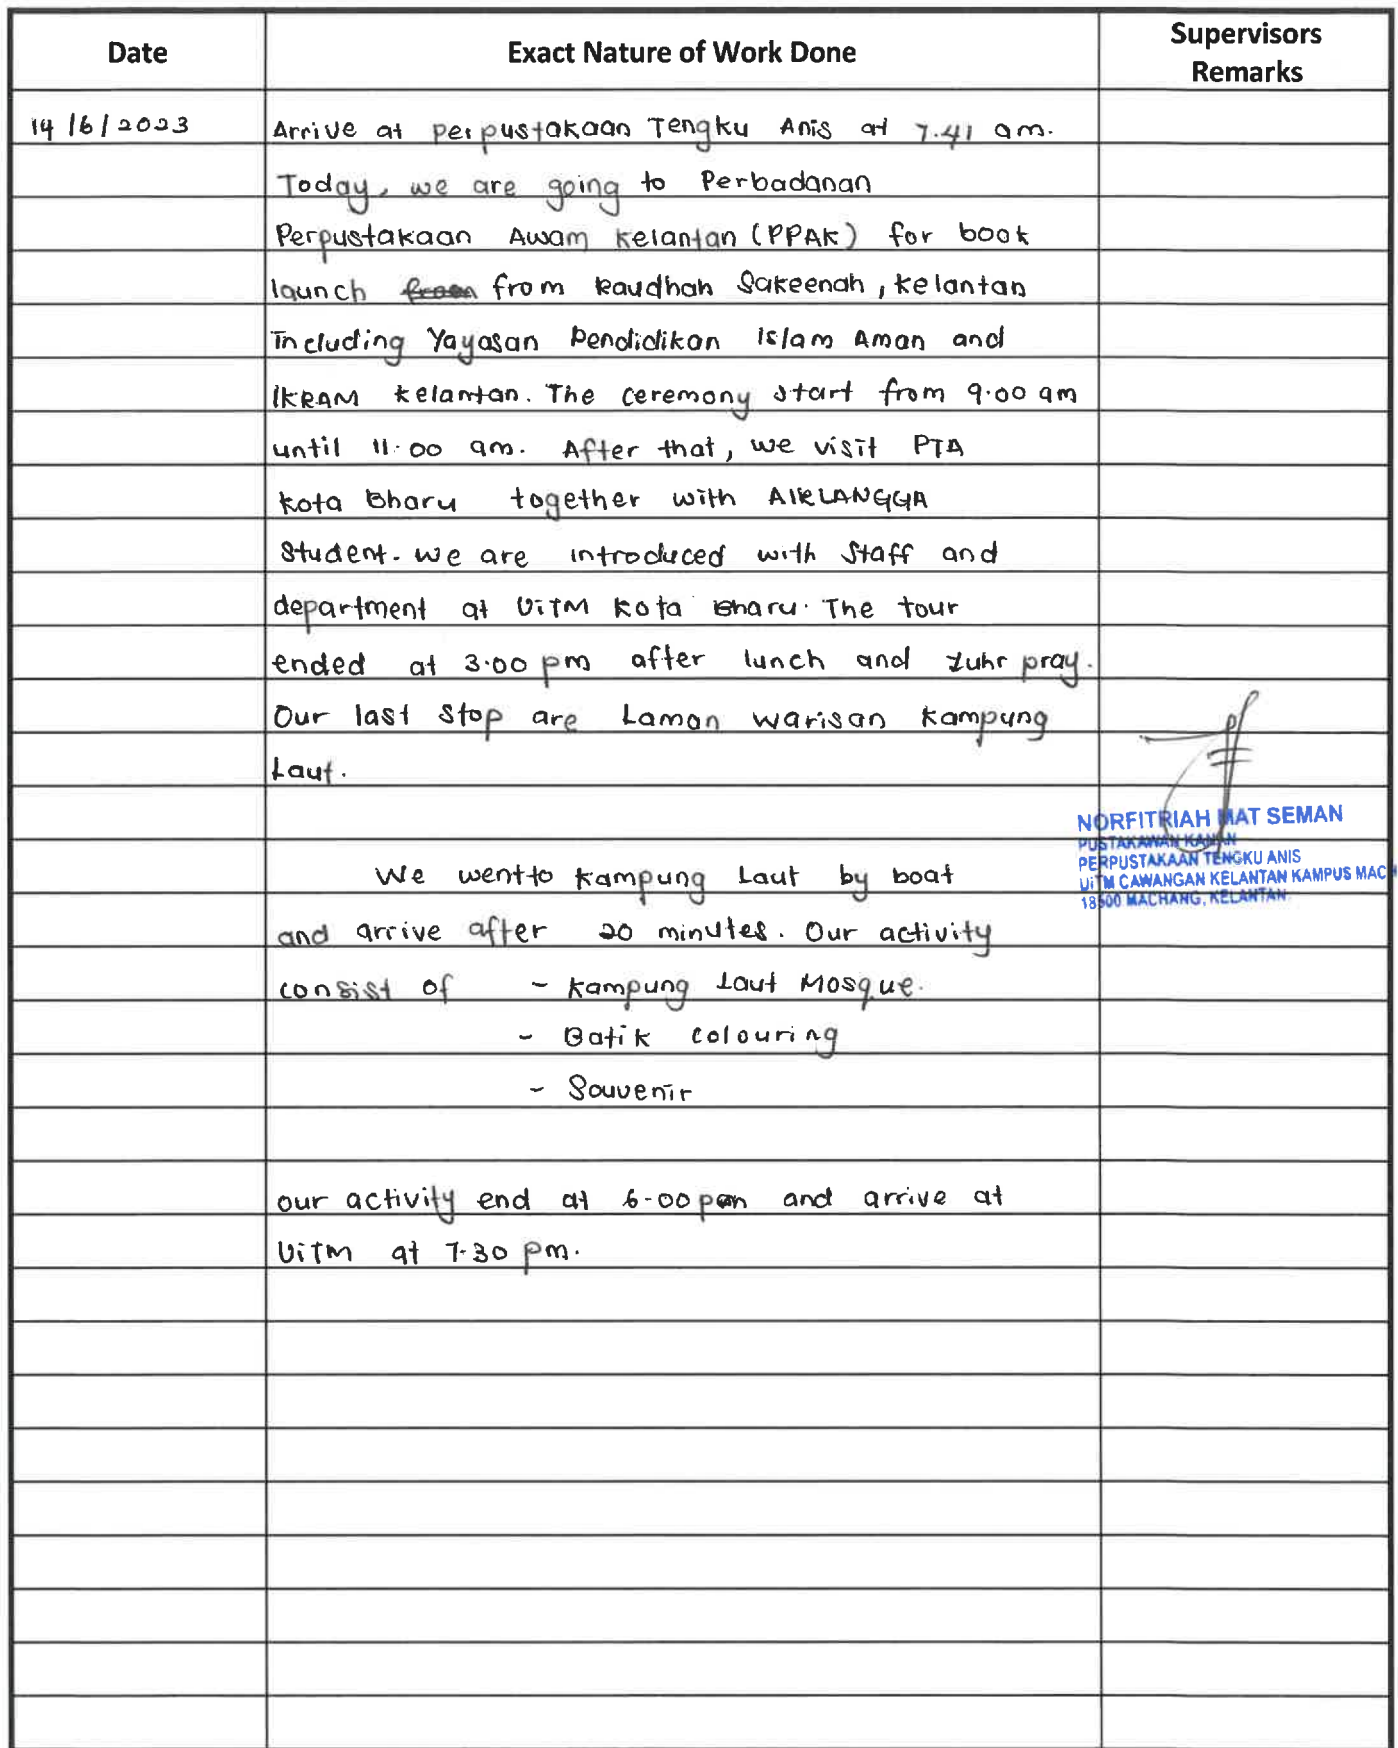 Date
Exact Nature of Work Done
Supervisors
Remarks
14/6/2023
Arrive at perpustakaan Tengku Anis at 7.41 am.
Today, we are going to Perbadanan
Perpustakaan Awam Kelantan (PPAK) for book
launch from Raudhah Sakeenah, Kelantan
Including Yayasan Pendidikan Islam Aman and
IKRAM Kelantan. The ceremony start from 9.00 am
until 11.00 am. After that, we visit PTA
Kota Bharu together with AIRLANGGA
Student. We are introduced with staff and
department at UiTM Kota Bharu. The tour
ended at 3.00 pm after lunch and zuhr pray.
Our last stop are Laman Warisan Kampung
Laut.
We went to Kampung Laut by boat
and arrive after 20 minutes. Our activity
consist of - Kampung Laut Mosque.
- Batik colouring
- Souvenir
our activity end at 6.00 pm and arrive at
UiTM at 7.30 pm.
NORFITRIAH MAT SEMAN
PUSTAKAWAN KANAN
PERPUSTAKAAN TENGKU ANIS
UiTM CAWANGAN KELANTAN KAMPUS MACH
18500 MACHANG, KELANTAN.